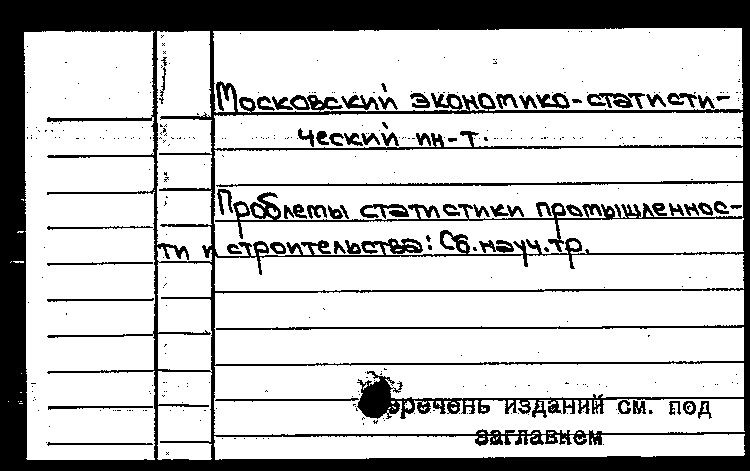 Московский экономико-статисти-
ческий ин-т.
Проблемы статистики промышленнос-
ти и строительства: Сб.науч.тр.
Перечень изданий см. под
заглавием